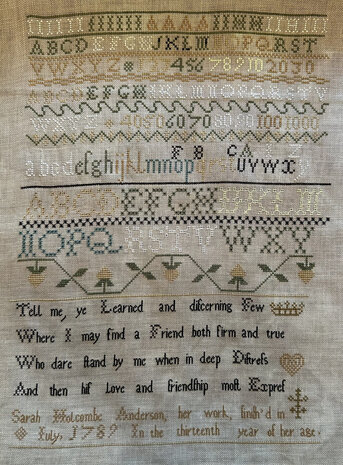 ABCDEFGHIJKLMNOPQRST
VWXYZ 456 78910 2030
EFGH
4050 6070 8090 100 1000
abcdefghijklmnop
F B C A
UVWX
ABCDEFGHIJKLM
NOPQRSTVWXY
Tell me, ye Learned and discerning Few
Where I may find a Friend both firm and true
Who dare stand by me when in deep Distress
And then his Love and friendship most Express
Sarah Holcombe Anderson, her work, finish'd in
July, 1789 In the thirteenth year of her age.